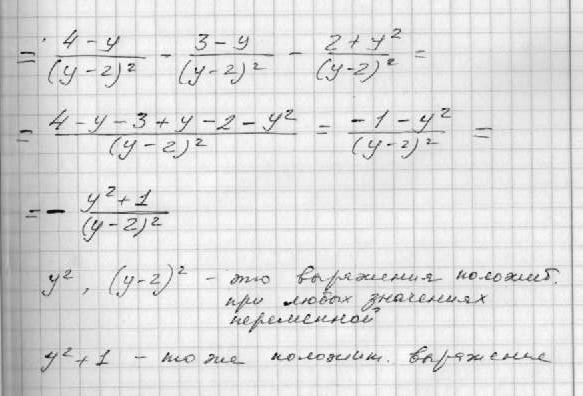 = (4 - y)/(y - 2)² - (3 - y)/(y - 2)² - (2 + y²)/(y - 2)² =
= (4 - y - 3 + y - 2 - y²)/(y - 2)² = (-1 - y²)/(y - 2)² =
= - (y² + 1)/(y - 2)²
y², (y - 2)² - это выражения положит.
при любых значениях
переменной
y² + 1 - то же положит. выражение